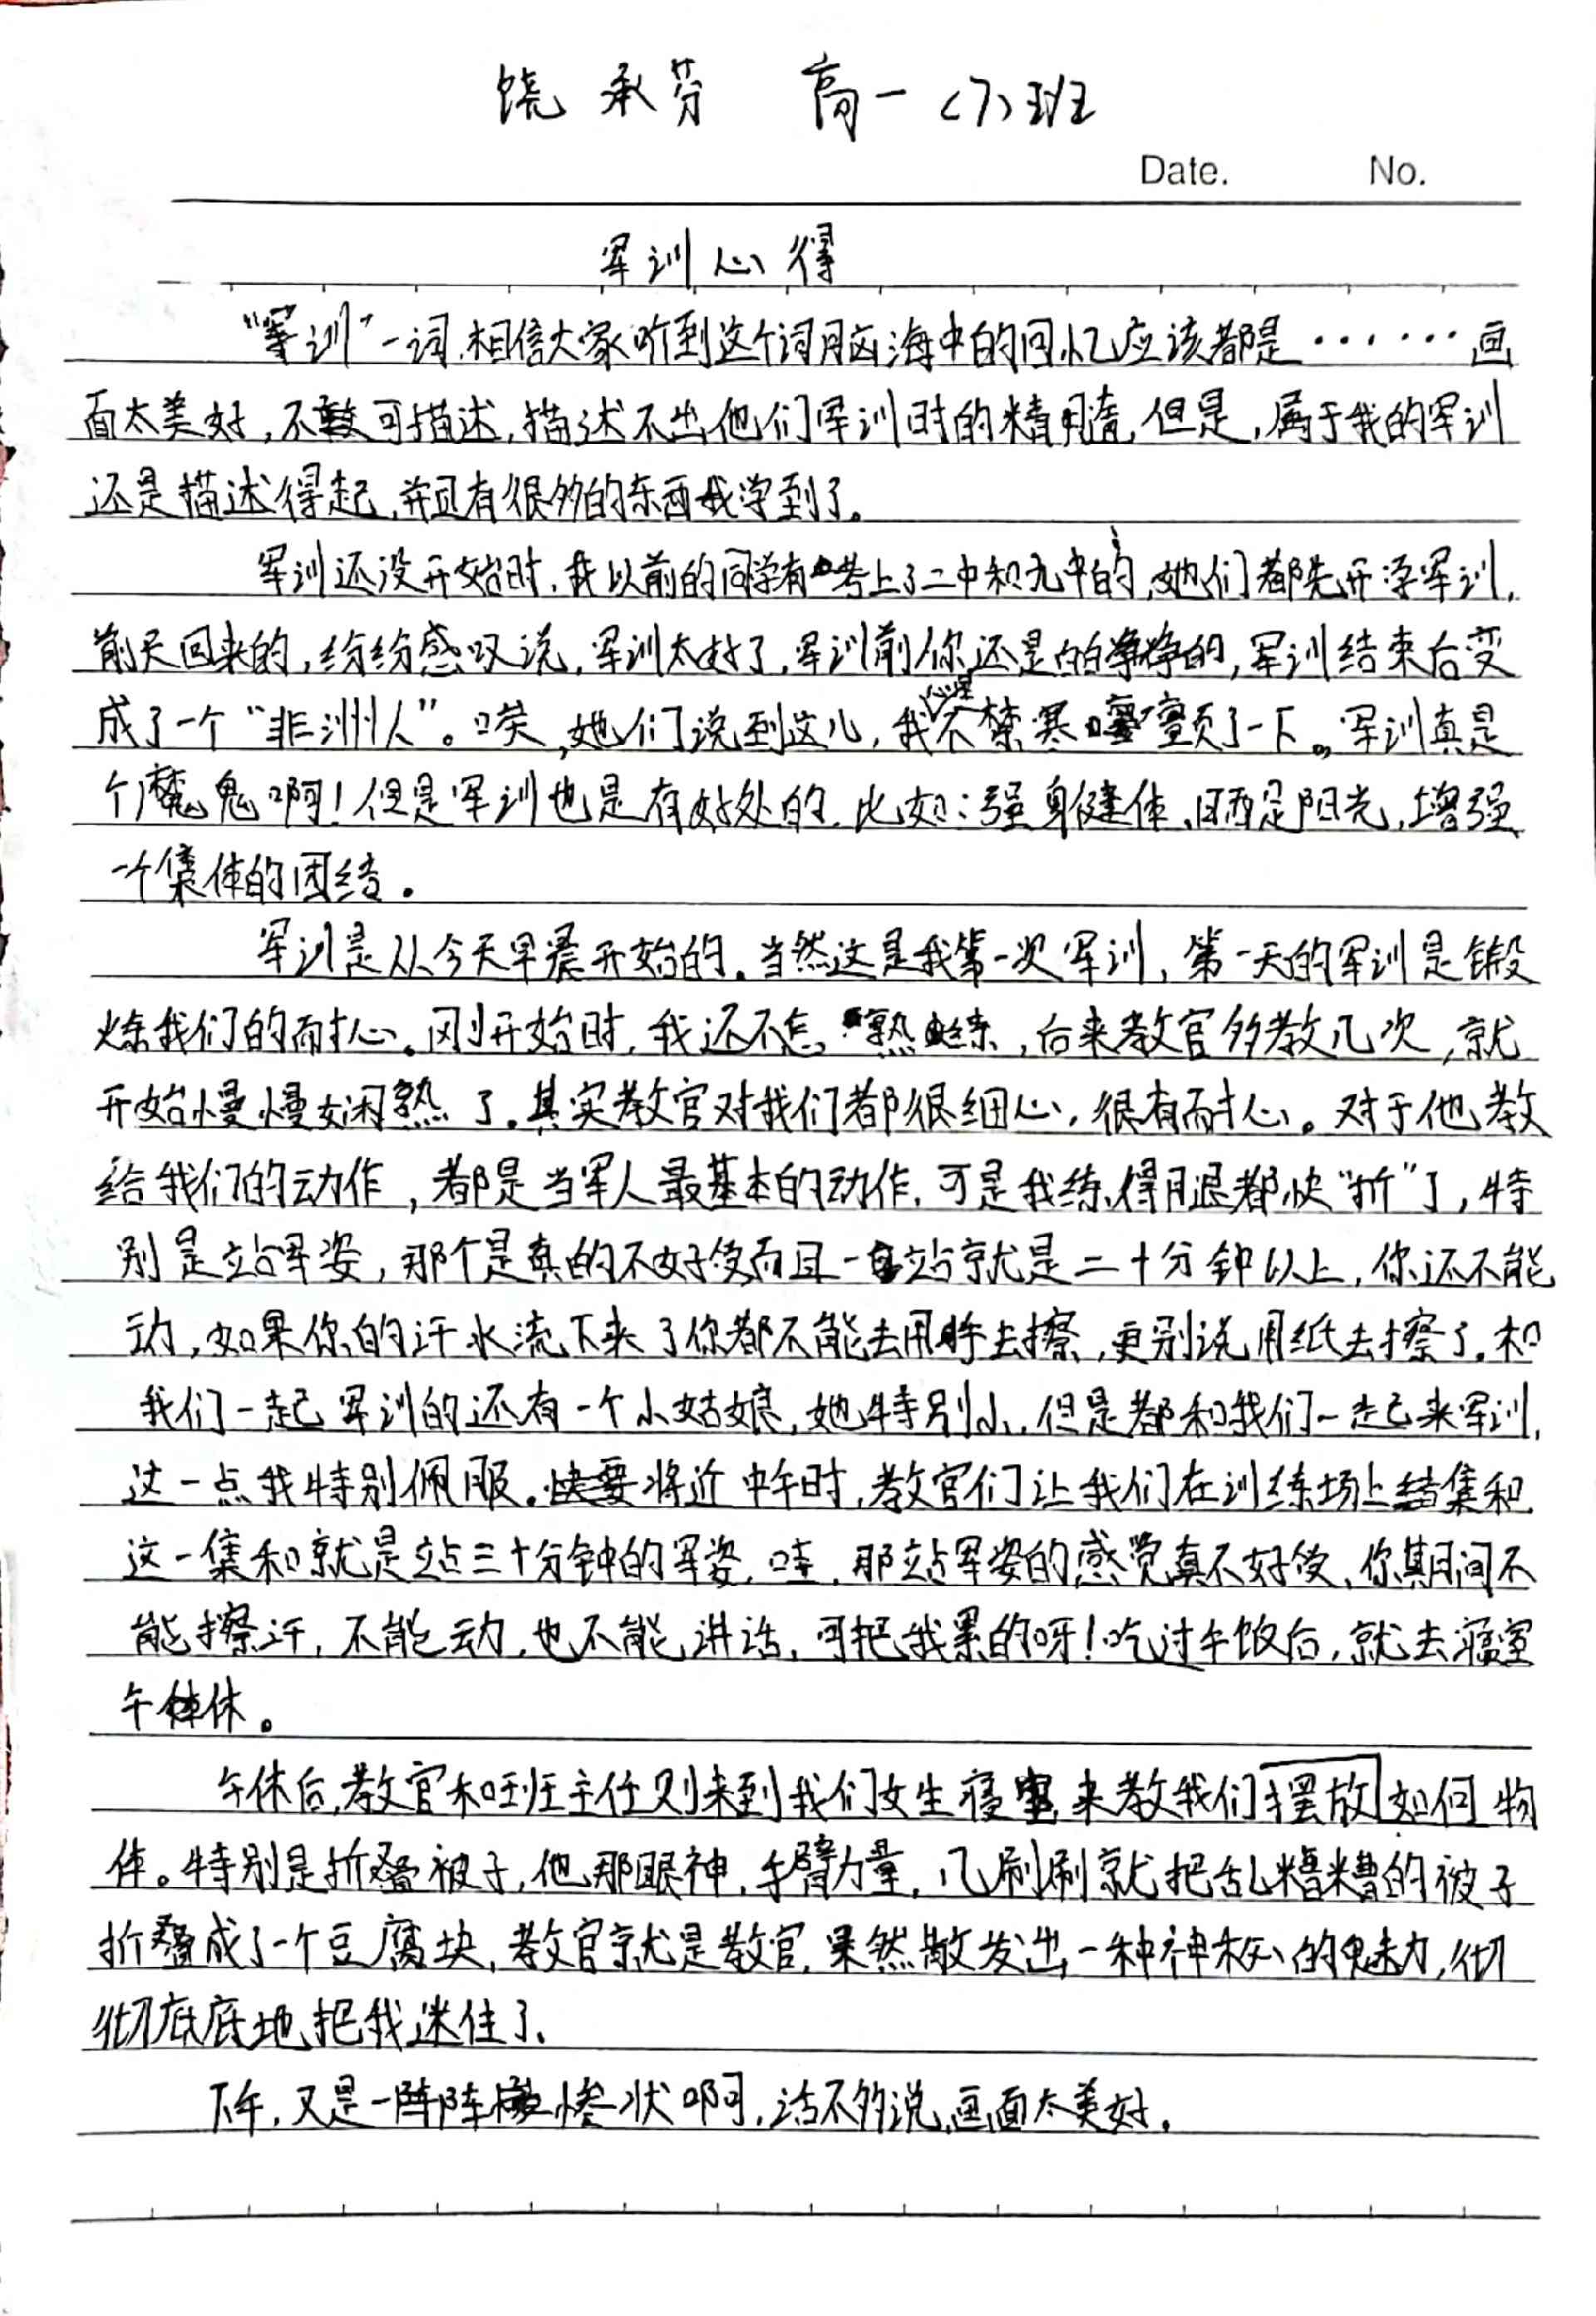 饶承芬 高一(7)班
Date. No.
军训心得
“军训”一词,相信大家听到这个词脑海中的回忆应该都是……画
面太美好,不可描述,描述不出他们军训时的精髓,但是,属于我的军训
还是描述得起,并且有很多的东西我学到了。
军训还没开始时,我以前的同学有考上了二中和九中的,她们都先开学军训,
前天回来的,纷纷感叹说,军训太好了,军训前你还是白白净净的,军训结束后变
成了一个“非洲人”。唉,她们说到这儿,我心里不禁寒颤了一下。军训真是
个魔鬼啊!但是军训也是有好处的,比如:强身健体,晒晒阳光,增强
一个集体的团结。
军训是从今天早晨开始的。当然这是我第一次军训,第一天的军训是锻
炼我们的耐心。刚开始时,我还不怎熟练,后来教官多教几次,就
开始慢慢娴熟了。其实教官对我们都很细心,很有耐心。对于他教
给我们的动作,都是当军人最基本的动作,可是我练得腿都快“折”了,特
别是站军姿,那个是真的不好受而且一站就是二十分钟以上,你还不能
动,如果你的汗水流下来了你都不能去用手去擦,更别说用纸去擦了。和
我们一起军训的还有一个小姑娘,她特别小,但是都和我们一起来军训,
这一点我特别佩服。快要将近中午时,教官们让我们在训练场上集和
这一集和就是站三十分钟的军姿,哇,那站军姿的感觉真不好受、你期间不
能擦汗,不能动,也不能讲话,可把我累的呀!吃过午饭后,就去寝室
午休。
午休后,教官和班主任则来到我们女生寝室,来教我们摆放如何物
体。特别是折叠被子,他那眼神,手臂力量,几刷刷就把乱糟糟的被子
折叠成了一个豆腐块,教官就是教官,果然散发出一种神秘的魅力,彻
彻底底地把我迷住了、
下午,又是一阵阵惨状啊,话不多说,画面太美好。